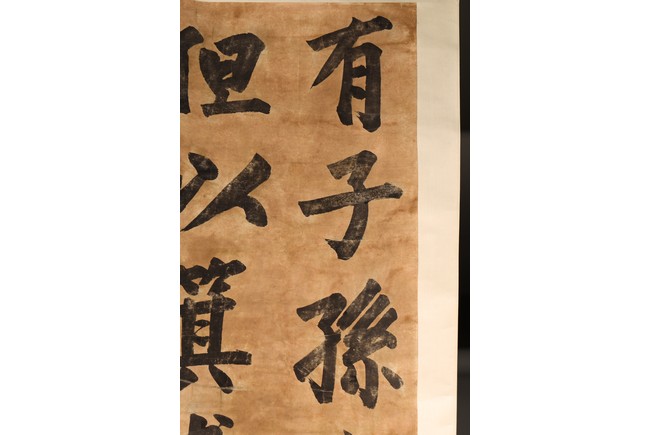 有子孫
但以箕